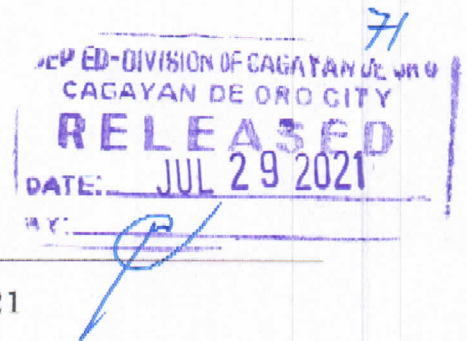 71
DEP ED-DIVISION OF CAGAYAN DE ORO
CAGAYAN DE ORO CITY
RELEASED
DATE: JUL 29 2021
BY:
21